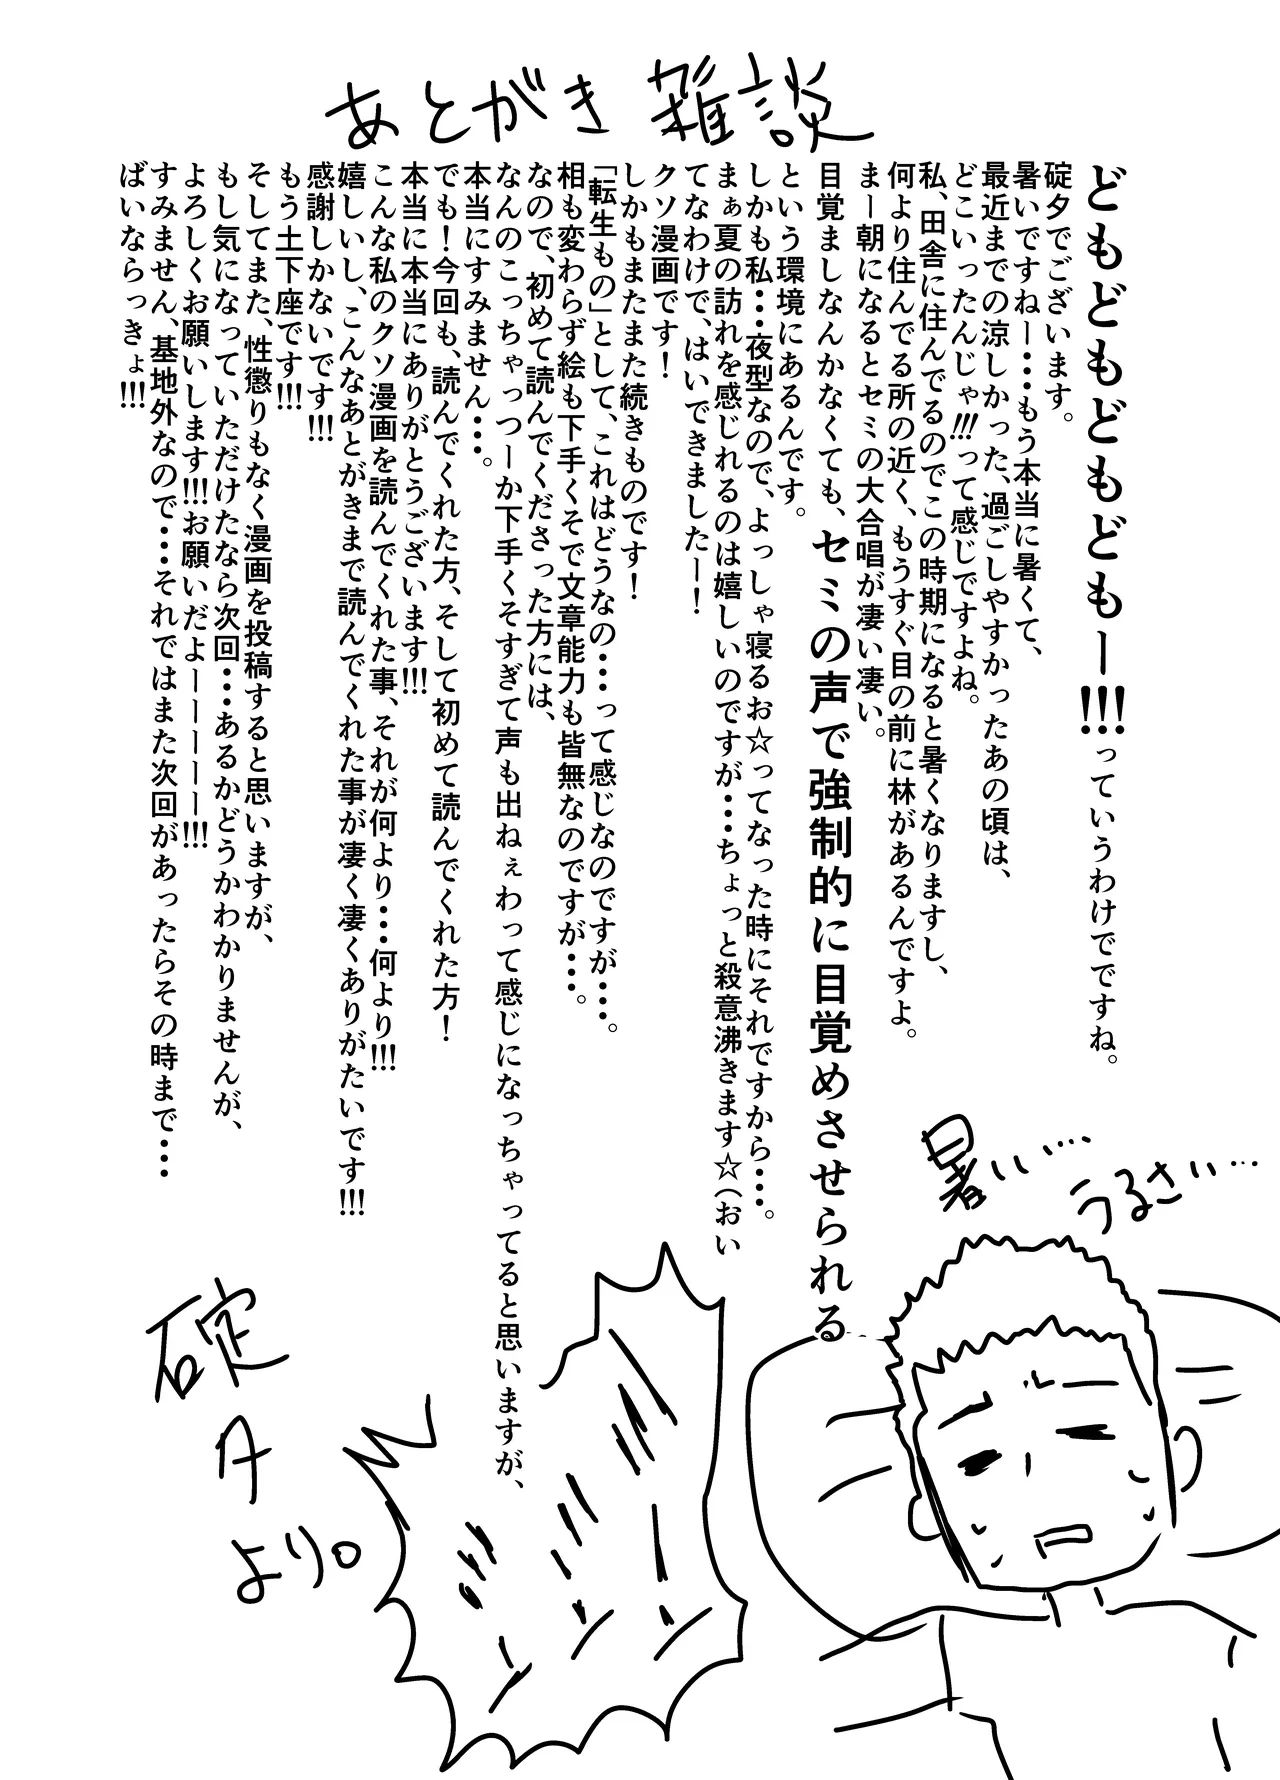 あとがき 雑談
どもどもどもどもー!!!っていうわけでですね。
碇夕でございます。
暑いですねー・・・もう本当に暑くて、
最近までの涼しかった、過ごしやすかったあの頃は、
どこいったんじゃ!!!って感じですよね。
私、田舎に住んでるのでこの時期になると暑くなりますし、
何より住んでる所の近く、もうすぐ目の前に林があるんですよ。
まー朝になるとセミの大合唱が凄い凄い。
目覚ましなんかなくても、セミの声で強制的に目覚めさせられる
という環境にあるんです。
しかも私・・・夜型なので、よっしゃ寝るお☆ってなった時にそれですから・・・。
まぁ夏の訪れを感じれるのは嬉しいのですが・・・ちょっと殺意沸きます☆(おい
てなわけで、はいできましたー!
クソ漫画です!
しかもまたまた続きものです!
「転生もの」として、これはどうなの・・・って感じなのですが・・・。
相も変わらず絵も下手くそで文章能力も皆無なのですが・・・。
なので、初めて読んでくださった方には、
なんのこっちゃっつーか下手くそすぎて声も出ねぇわって感じになっちゃってると思いますが、
本当にすみません・・・。
でも!今回も、読んでくれた方、そして初めて読んでくれた方!
本当に本当にありがとうございます!!!
こんな私のクソ漫画を読んでくれた事、それが何より・・・何より!!!
嬉しいし、こんなあとがきまで読んでくれた事が凄く凄くありがたいです!!!
感謝しかないです!!!
もう土下座です!!!
そしてまた、性懲りもなく漫画を投稿すると思いますが、
もし気になっていただけたなら次回・・・あるかどうかわかりませんが、
よろしくお願いします!!!お願いだよーーーーー!!!
すみません、基地外なので・・・それではまた次回があったらその時まで・・・
ばいならっきょ!!!
暑いい・・・
うるさいい・・・
ミーンミーンミーン
碇夕
より。